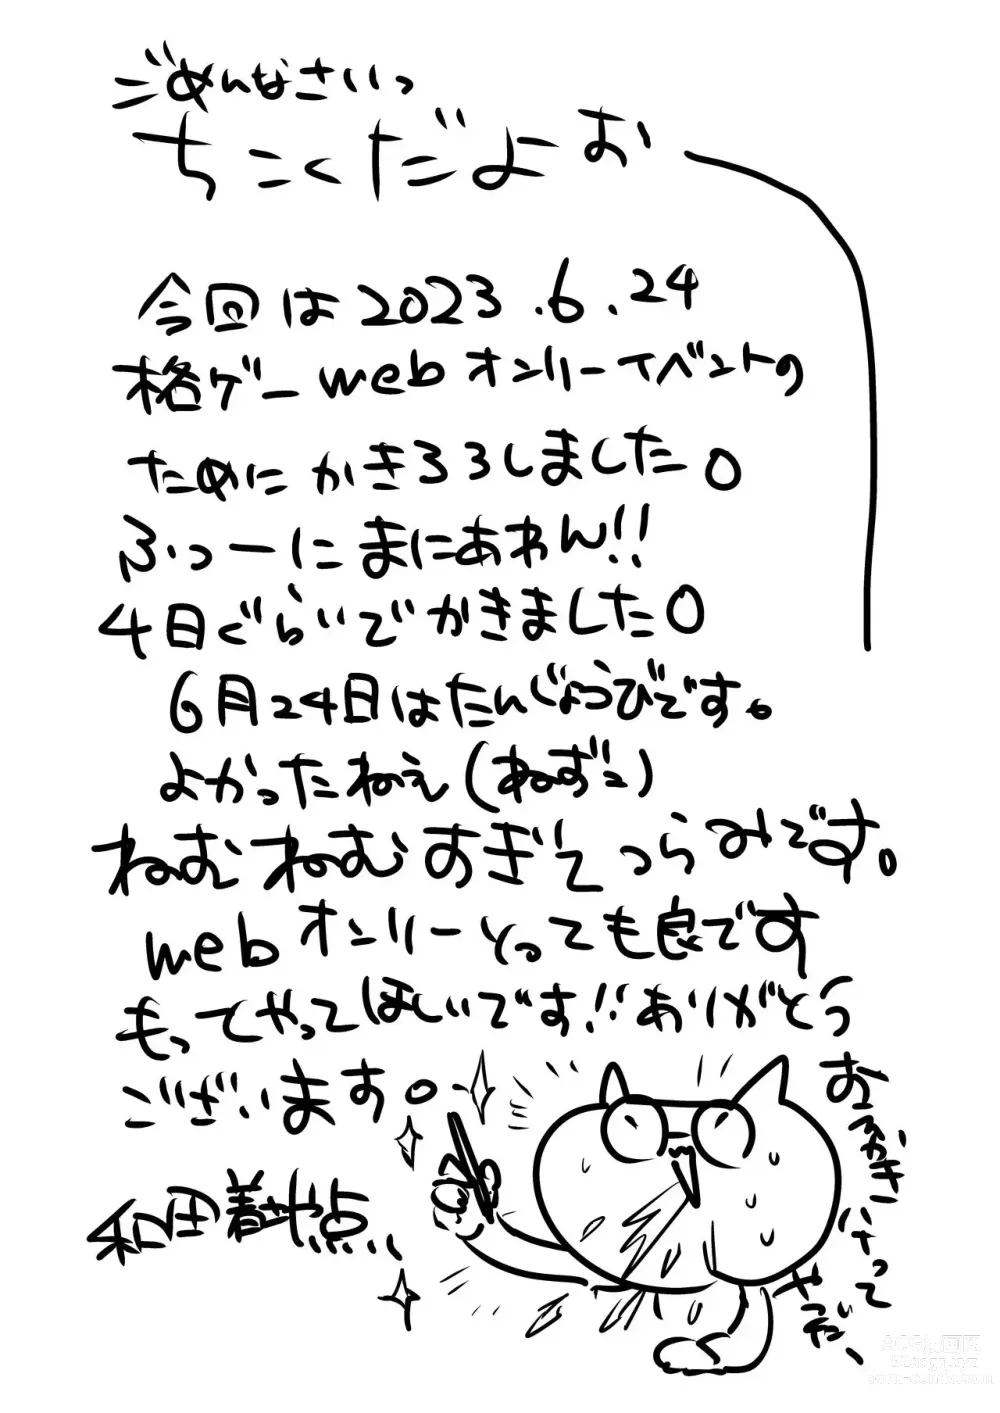 ごめんなさいっ
ちこくだよお
今回は2023.6.24
格ゲーwebオンリーイベントの
ためにかきろろしました。
ふつーにまにあわん!!
4日ぐらいでかきました。
6月24日はたんじょうびです。
よかったねぇ(ねずこ)
ねむねむすぎてつらみです。
webオンリーとっても良です
もってやってほしいです!!ありがとう
ございます。
和田
おえかき
って
やだ、